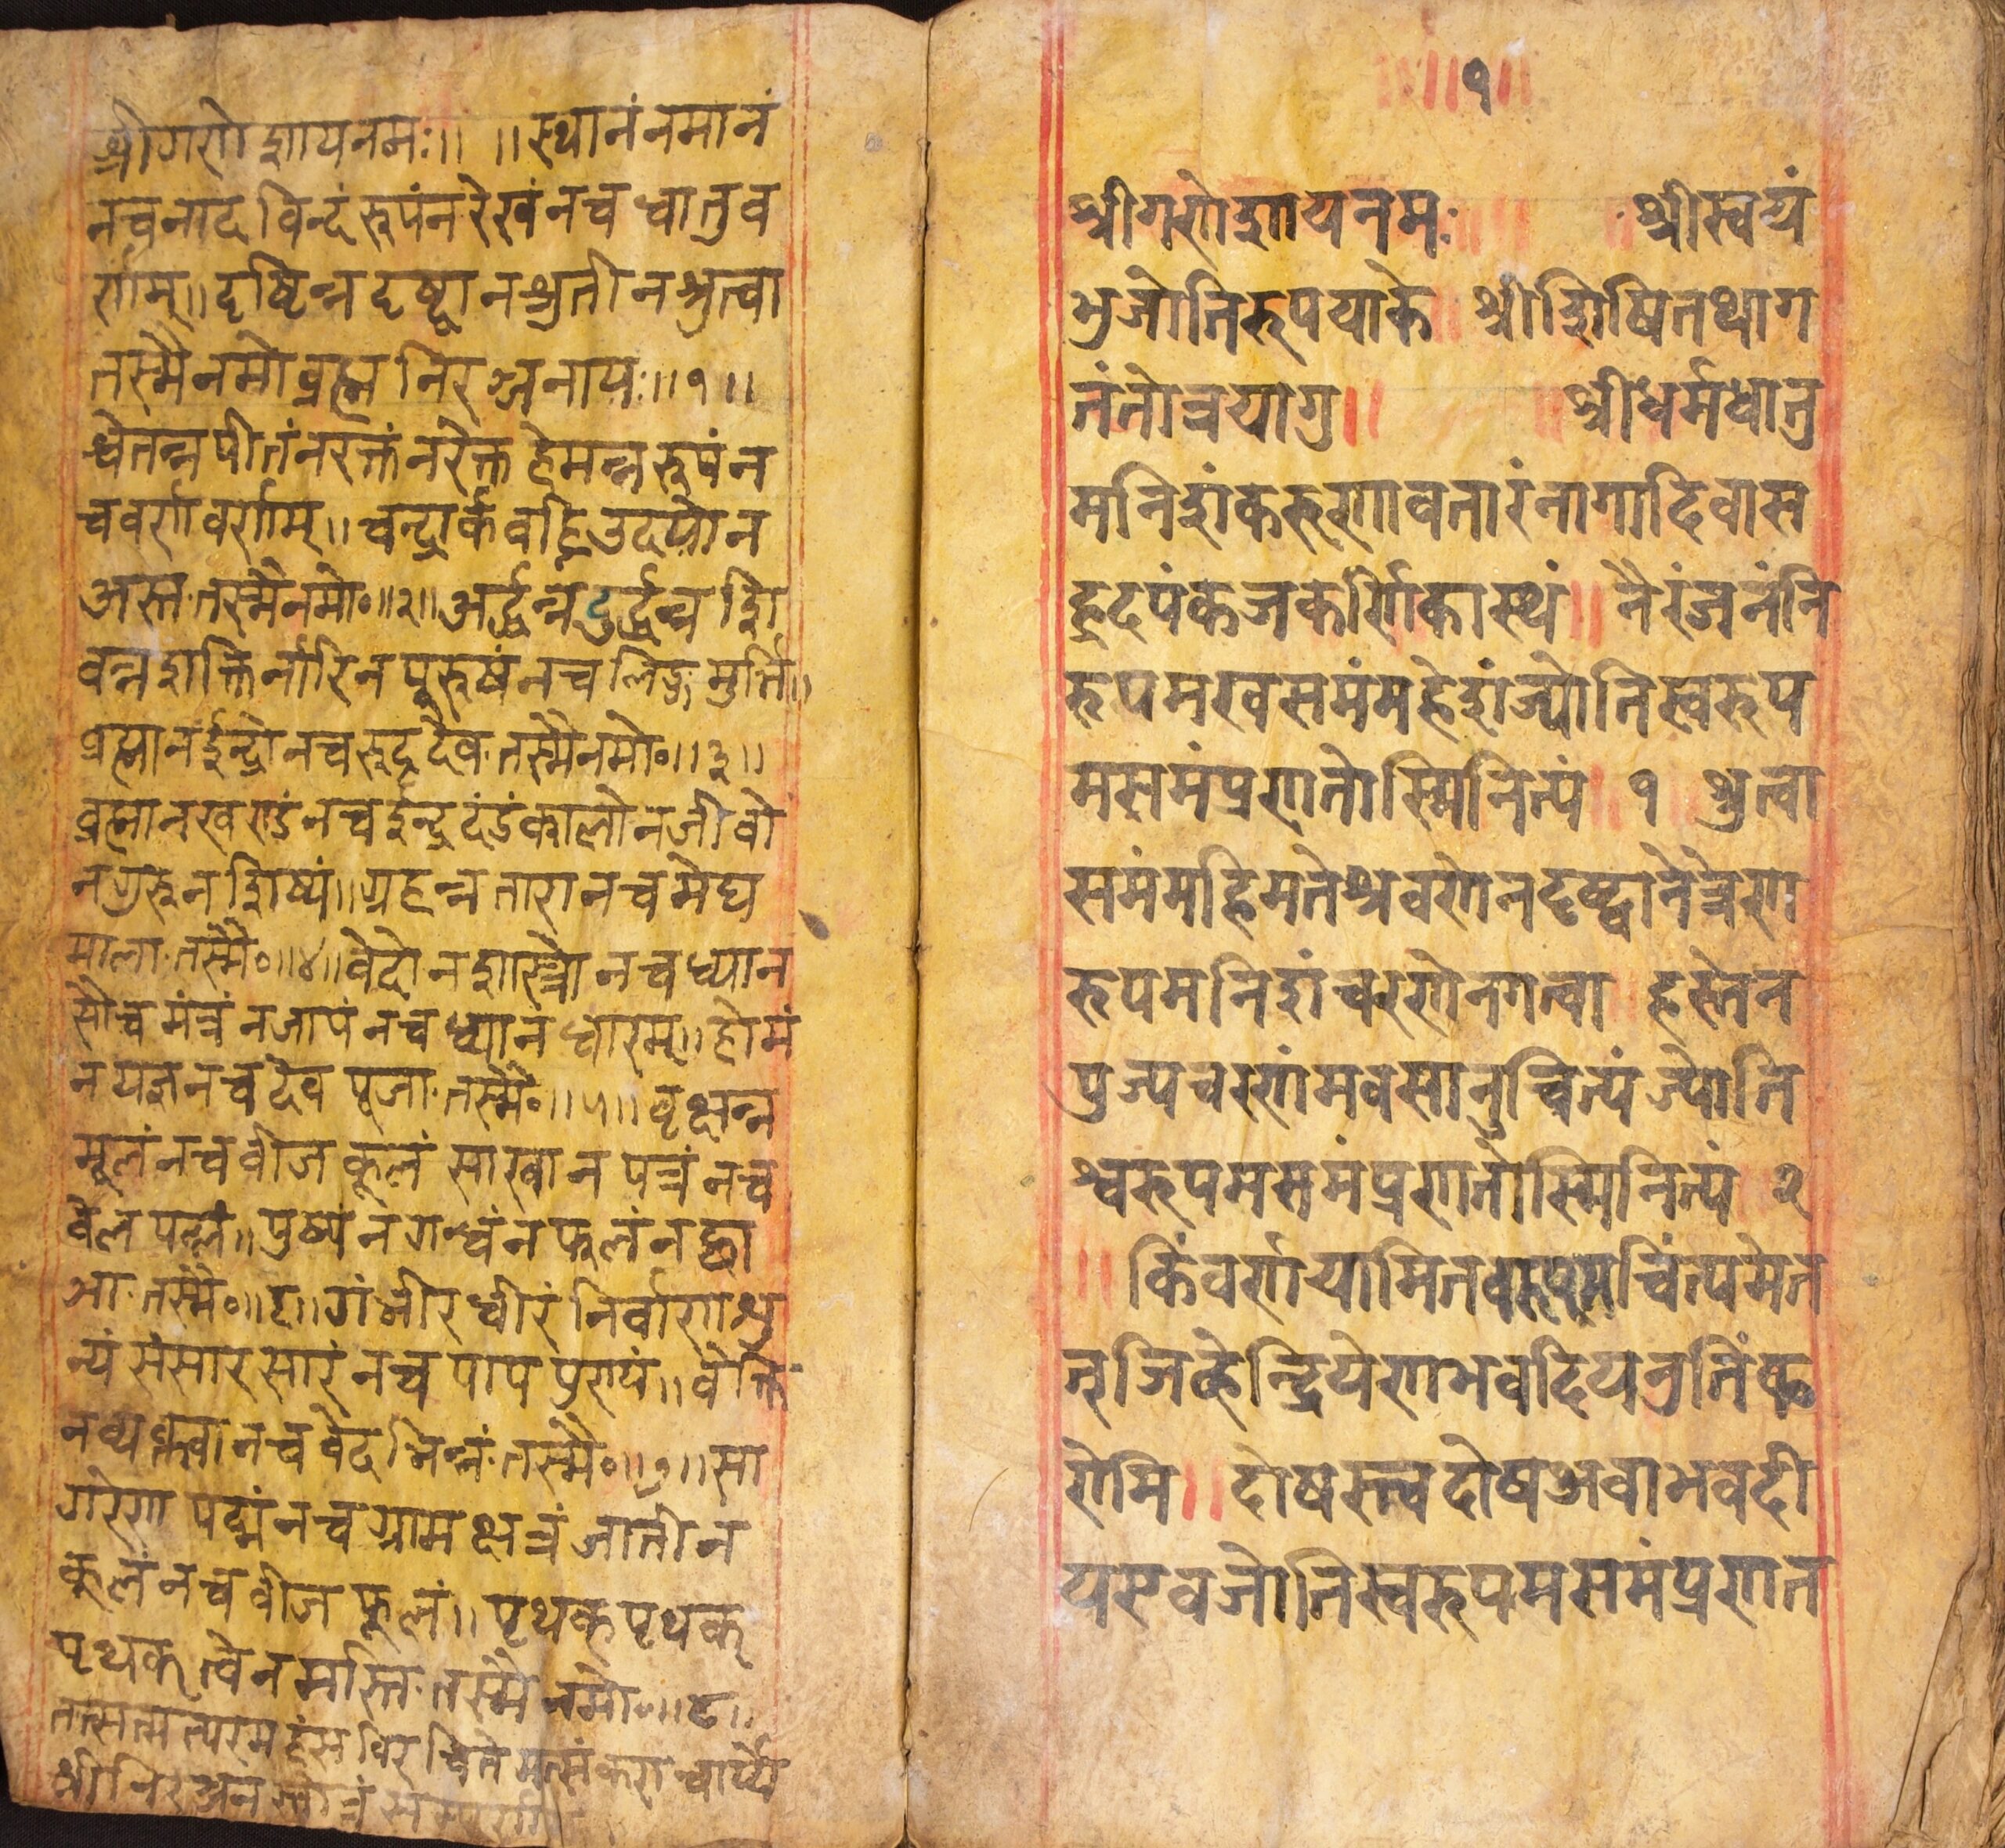 श्रीगणेशायनमः॥ ॥स्थानंनमानं
नचनादविन्दंरूपंनरेखंनचधातुव
र्णम्॥दृष्टिन्नदृष्टानश्रुतीनश्रुत्वा
तस्मैनमोव्रह्मनिरञ्जनायः॥१॥
श्वेतन्नपीतंनरक्तंनरेक्तहेमन्नरूपंन
चवर्णवर्णम्॥चन्द्रार्कवह्निउदयोन
अस्ततस्मैनमो॰॥२॥अर्द्धन्नदुर्द्धन्नशि
वन्नशक्तिर्नारिनपूरुषंनचलिङ्गमुर्त्ति॥
व्रह्मानईन्द्रोनचरूद्रदेवतस्मैनमो॰॥३॥
व्रह्मानखण्डंनचईन्द्रदंडंकालोनजीवो
नग्ररूनशिष्यं॥ग्रहन्नतारानचमेघ
मालातस्मै॰॥४॥वेदोनशास्त्रोनचध्यान
सौचमंत्रंनजापंनचध्यानंधारम्॥होमं
नयज्ञनचदेवपूजातस्मै॰॥५॥वृक्षन्न
मूलंनचवीजकूलंसाखानपत्रंनच
वेलपल्लं॥पुष्पंनगन्धंनफलंनछा
आतस्मै॰॥६॥गंभीरधीरंनिर्वाणश्रु
न्यंसंसारसारंनचपापपुण्यं॥वेक्ति
नव्यक्त्वानचवेदभिन्नंतस्मै॰॥७॥सा
गरेणपद्मंनचग्रामक्षत्रंजातीन
कूलंनचवीजफूलं॥पृथक्पृथक्
पृथक्त्वेनमस्तितस्मैनमो॰॥८॥
तत्सत्मत्परमहंसविरचितेमत्संकराचार्य्ये
श्रीनिरञ्जनस्तोत्रंसम्पूर्णम्
१
श्रीगणेशायनमः श्रीस्वयं
भुजोतिरुपयाके श्रीशिषितथाग
तंतोत्रयागु॥ श्रीधर्मधातु
मनिशंकरूणावतारंनागादिवास
हृदपंकजकर्णिकास्थं॥नैरंजनंनि
रुपमखसमंमहेशंज्योतिस्वरुप
मसमंप्रणतोस्मिनित्यं १ श्रुत्वा
समंमहिमतेश्रवणेनदृष्ट्वानेत्रेण
रुपमनिशंचरणेनगत्वा हस्तेन
पुज्यचरणंमवसानुचित्यंज्योति
श्वरुपमसमंप्रणतोस्मिनित्यं २
॥किंवर्णयामितवचिंत्यमेत
त्जिव्हेन्द्रियेणभवदियनुतिंक
रोमि॥दोषस्त्वदोषअवाभवदी
यएवजोतिस्वरुपमसमंप्रणत